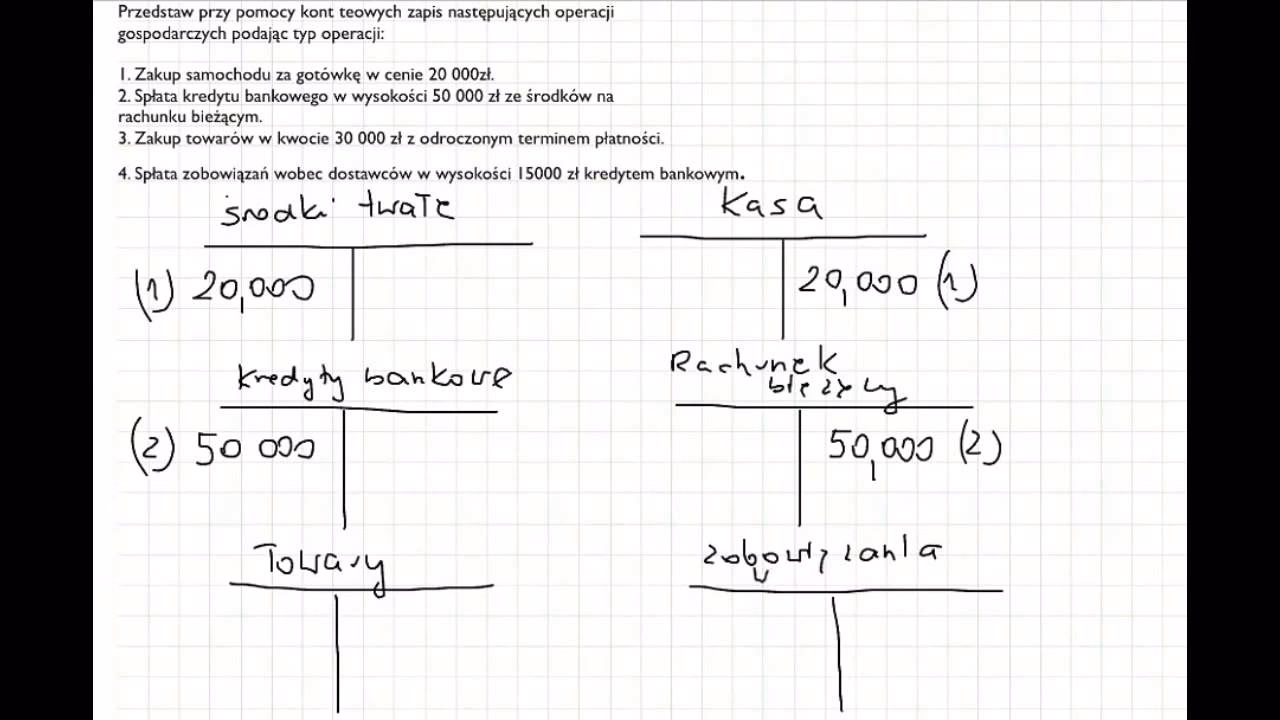 Przedstaw przy pomocy kont teowych zapis następujących operacji
gospodarczych podając typ operacji:
1. Zakup samochodu za gotówkę w cenie 20 000zł.
2. Spłata kredytu bankowego w wysokości 50 000 zł ze środków na
rachunku bieżącym.
3. Zakup towarów w kwocie 30 000 zł z odroczonym terminem płatności.
4. Spłata zobowiązań wobec dostawców w wysokości 15000 zł kredytem bankowym.
środki trwałe
Kasa
(1) 20,000
20,000 (1)
Kredyty bankowe
Rachunek
bieżący
(2) 50 000
50,000 (2)
Towary
zobowiązania